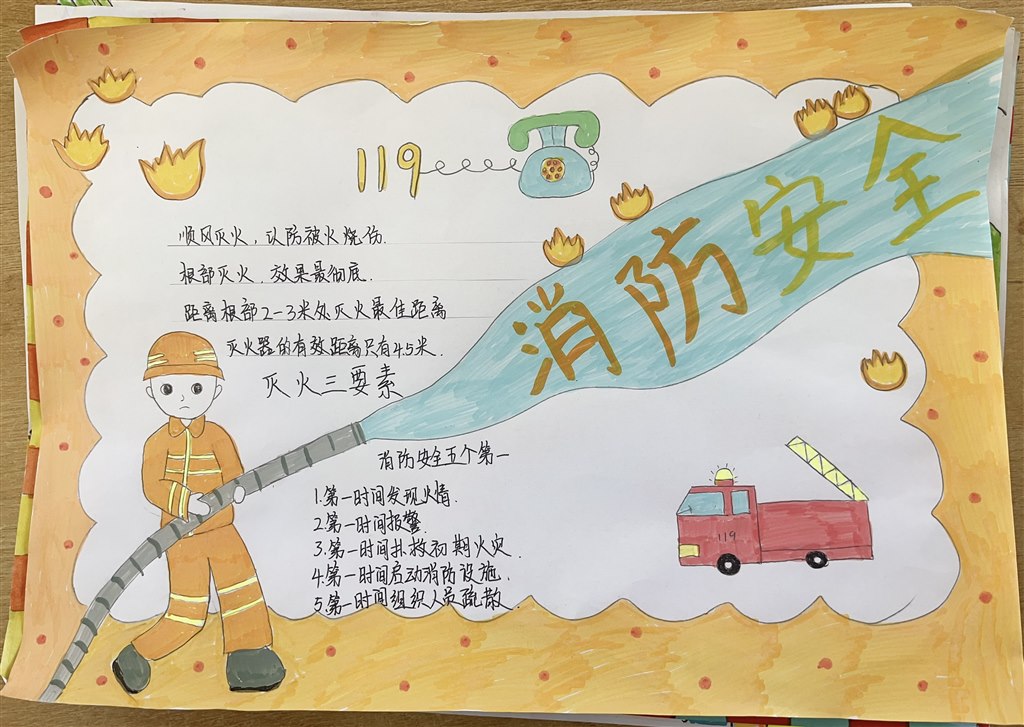 119
消防安全
顺风灭火，以防被火烧伤.
根部灭火，效果最彻底.
距离根部2-3米处灭火最佳距离
灭火器的有效距离只有4.5米.
灭火三要素
消防安全五个第一
1.第一时间发现火情.
2.第一时间报警
3.第一时间扑救初期火灾.
4.第一时间启动消防设施.
5.第一时间组织人员疏散.
119